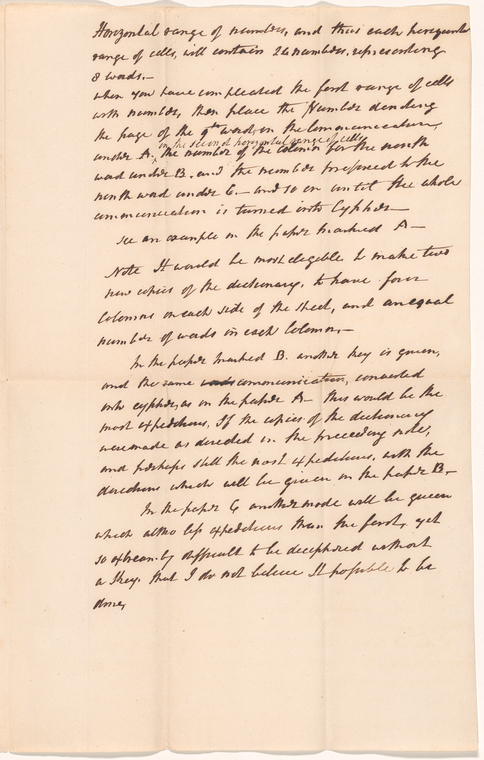 Horizontal range of numbers, and thus each
range of cells, will contain 24 numbers, representing
8 words.—
when you have compleated the first range of cells
with numbers, then place the Number denoting
the page of the 9th word, in the communication,
in the second horizontal range of cells
under A. the number of the Colomn for the ninth
word under B. and the number prefixed to the
ninth word under C— and so on until the whole
communication is turned into Cypher—
see an example in the paper marked A—
Note It would be most elegible to make two
new copies of the dictionary, to have four
Colomns on each side of the sheet, and an equal
number of words in each Colomn,—
In the paper marked B. another key is given,
and the same communication, converted
into cypher, as in the paper A— this would be the
most expeditious, If the copies of the dictionary
were made as directed in the preceeding note,
and perhaps still the most expeditious, with the
directions which will be given in the paper B—
In the paper C another mode will be given
which altho less expeditious than the first, yet
so difficult to be decyphered without
a Key, that I do not believe It possible to be
done,